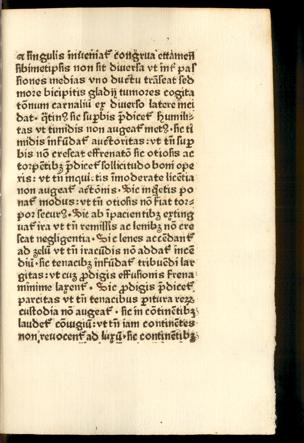 ⁊ singulis inveniat̃ congrua ⁊ttamen
sibimetipsis non sit diversa vt int̃ pas
siones medias vno ductu trãseat sed
more bicipitis gladij tumores cogita
tõnum carnaliũ ex diverso latere inci
dat · q̃tin? sic sup̱bis p̃dicet̃ humili-
tas vt timidis non augeat̃ met? · sic ti
midis infũdat̃ auctoritas : vt tñ sup̱
bis nõ crescat effrenatõ sic otiosis ac
torpẽtib⁊ p̃dicet̃ sollicitudo boni ope
ris : vt tñ inqui : tis ĩmoderate licẽtia
non augeat̃ actõnis · Sic inq̃etis po
nat̃ modus : vt tñ otiosis nõ fiat tor-
por secur? · Sic ab ĩpacientib⁊ exting
uat̃ ira vt tñ remissis ac lenib⁊ nõ cre
scat negligentia · Sic lenes accẽdant̃
ad zelũ vt tñ iracũdis nõ addat̃ incẽ
diũ · sic tenacib⁊ infũdat̃ tribuẽdi lar
gitas : vt tñ p̱digis effusionis frena
minime laxent̃ · Sic p̱digis p̃dicet̃
parcitas vt tñ tenacibus p̱itura re⁊
custodia nõ augeat̃ · sic in cõtinẽtib⁊
laudet̃ cõiugiũ : vt tñ iam continẽtes
non revocent̃ ad luxũ · sic continẽtib⁊